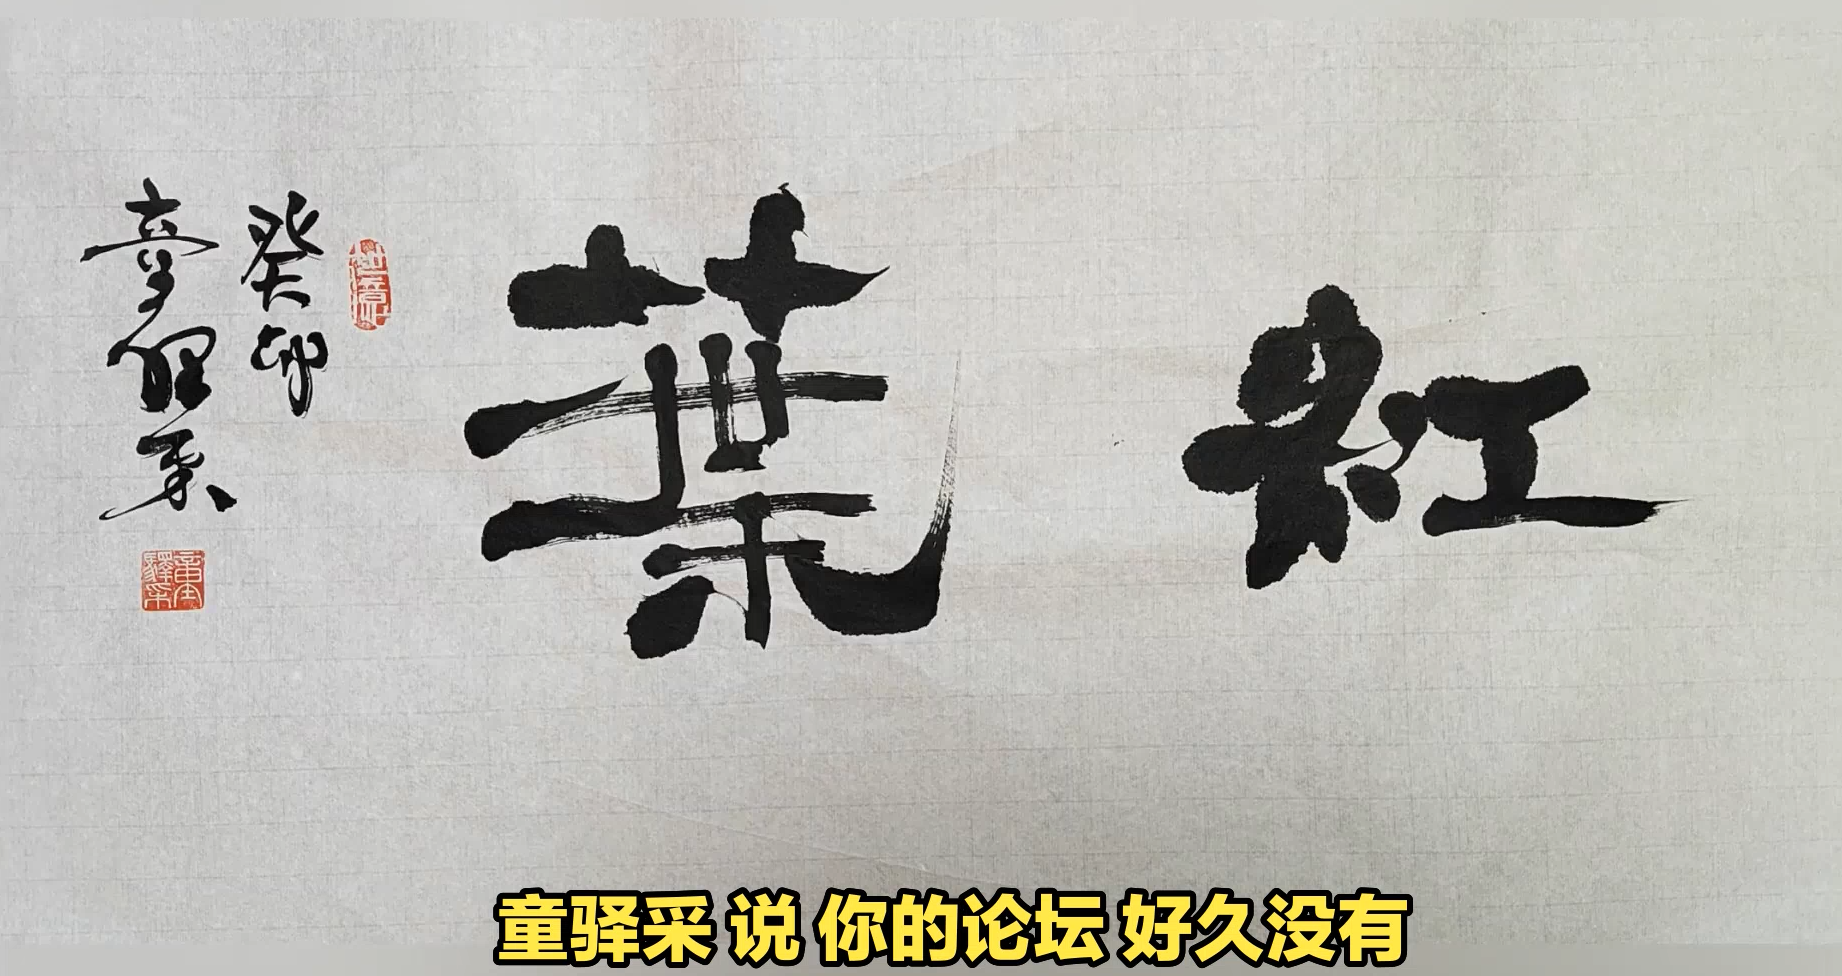 紅葉
癸卯
童驛采
童驿采 说 你的论坛 好久没有